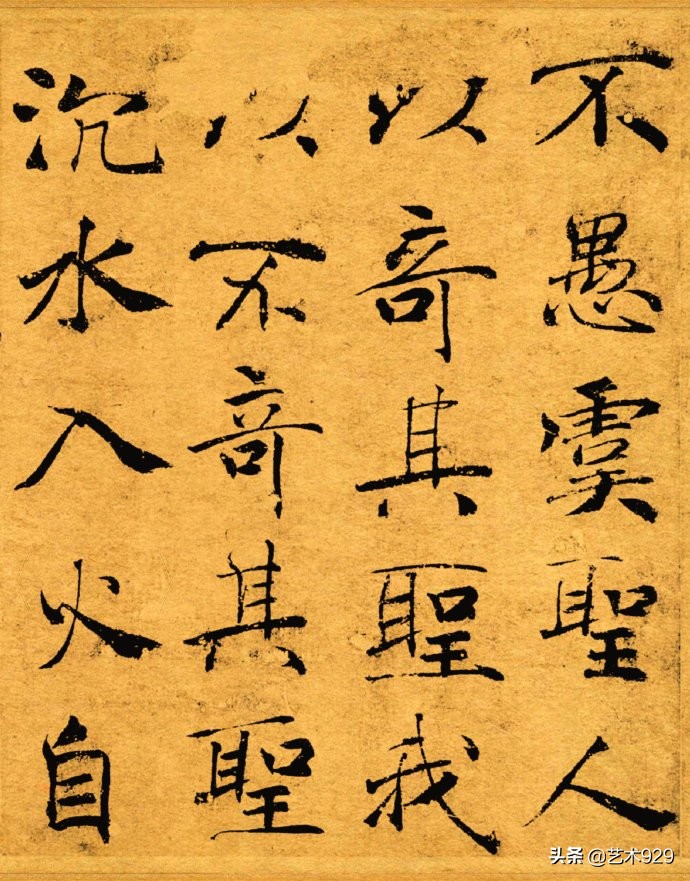 不愚虞聖人
以竒其聖我
以不竒其聖
沉水入火自
头条 @艺术929